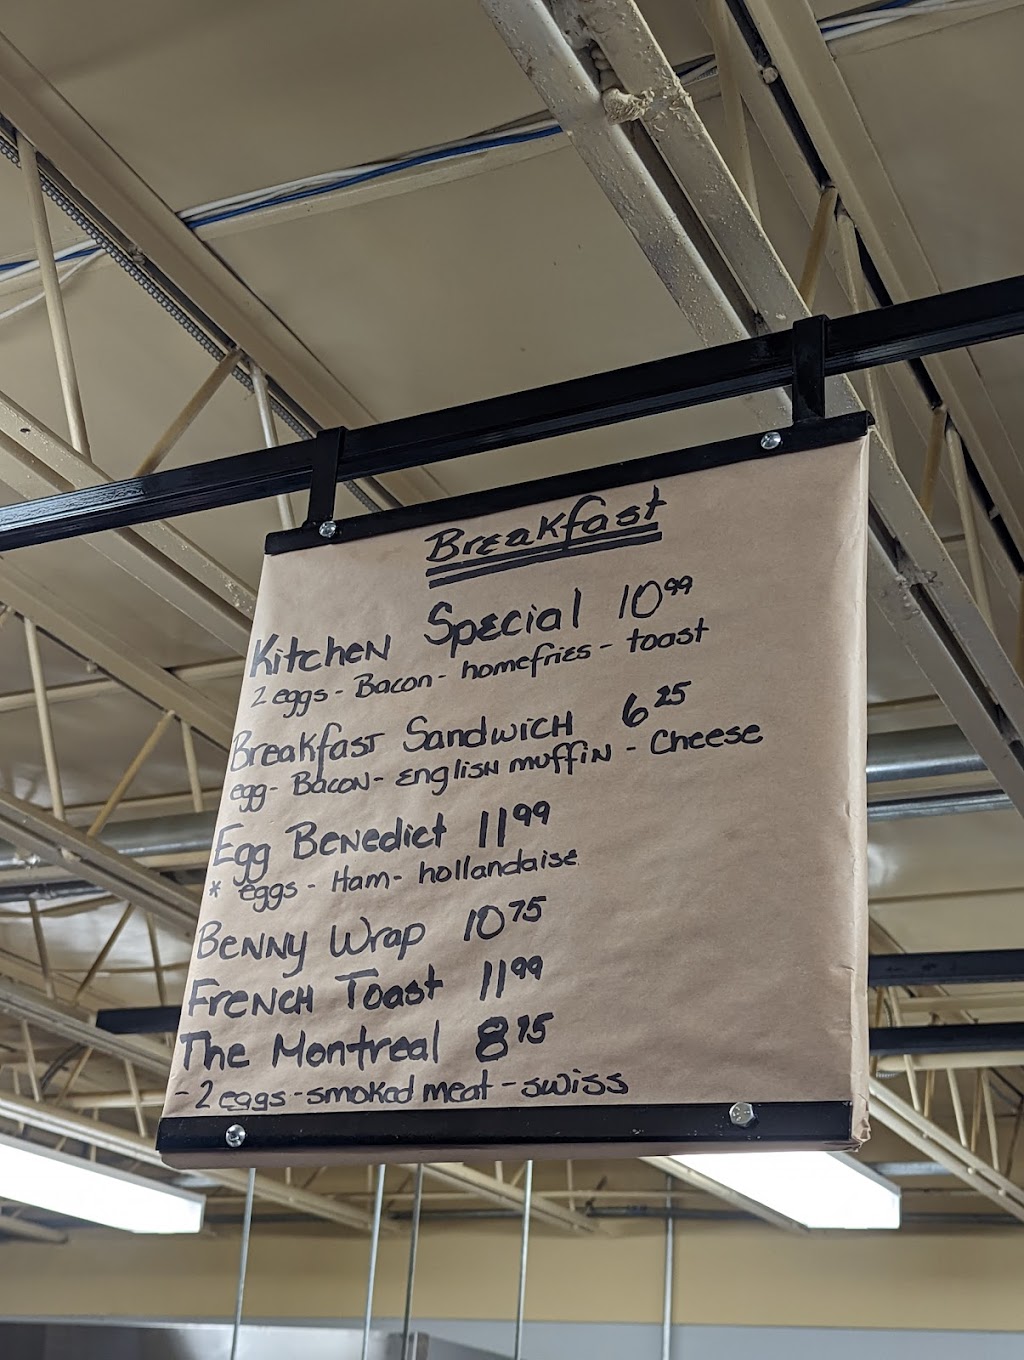 Breakfast
Kitchen Special 10.99
2 eggs - Bacon - homefries - toast
Breakfast Sandwich 6.25
egg - Bacon - english muffin - cheese
Egg Benedict 11.99
* eggs - Ham - hollandaise
Benny Wrap 10.75
French Toast 11.99
The Montreal 8.75
- 2 eggs - smoked meat - swiss